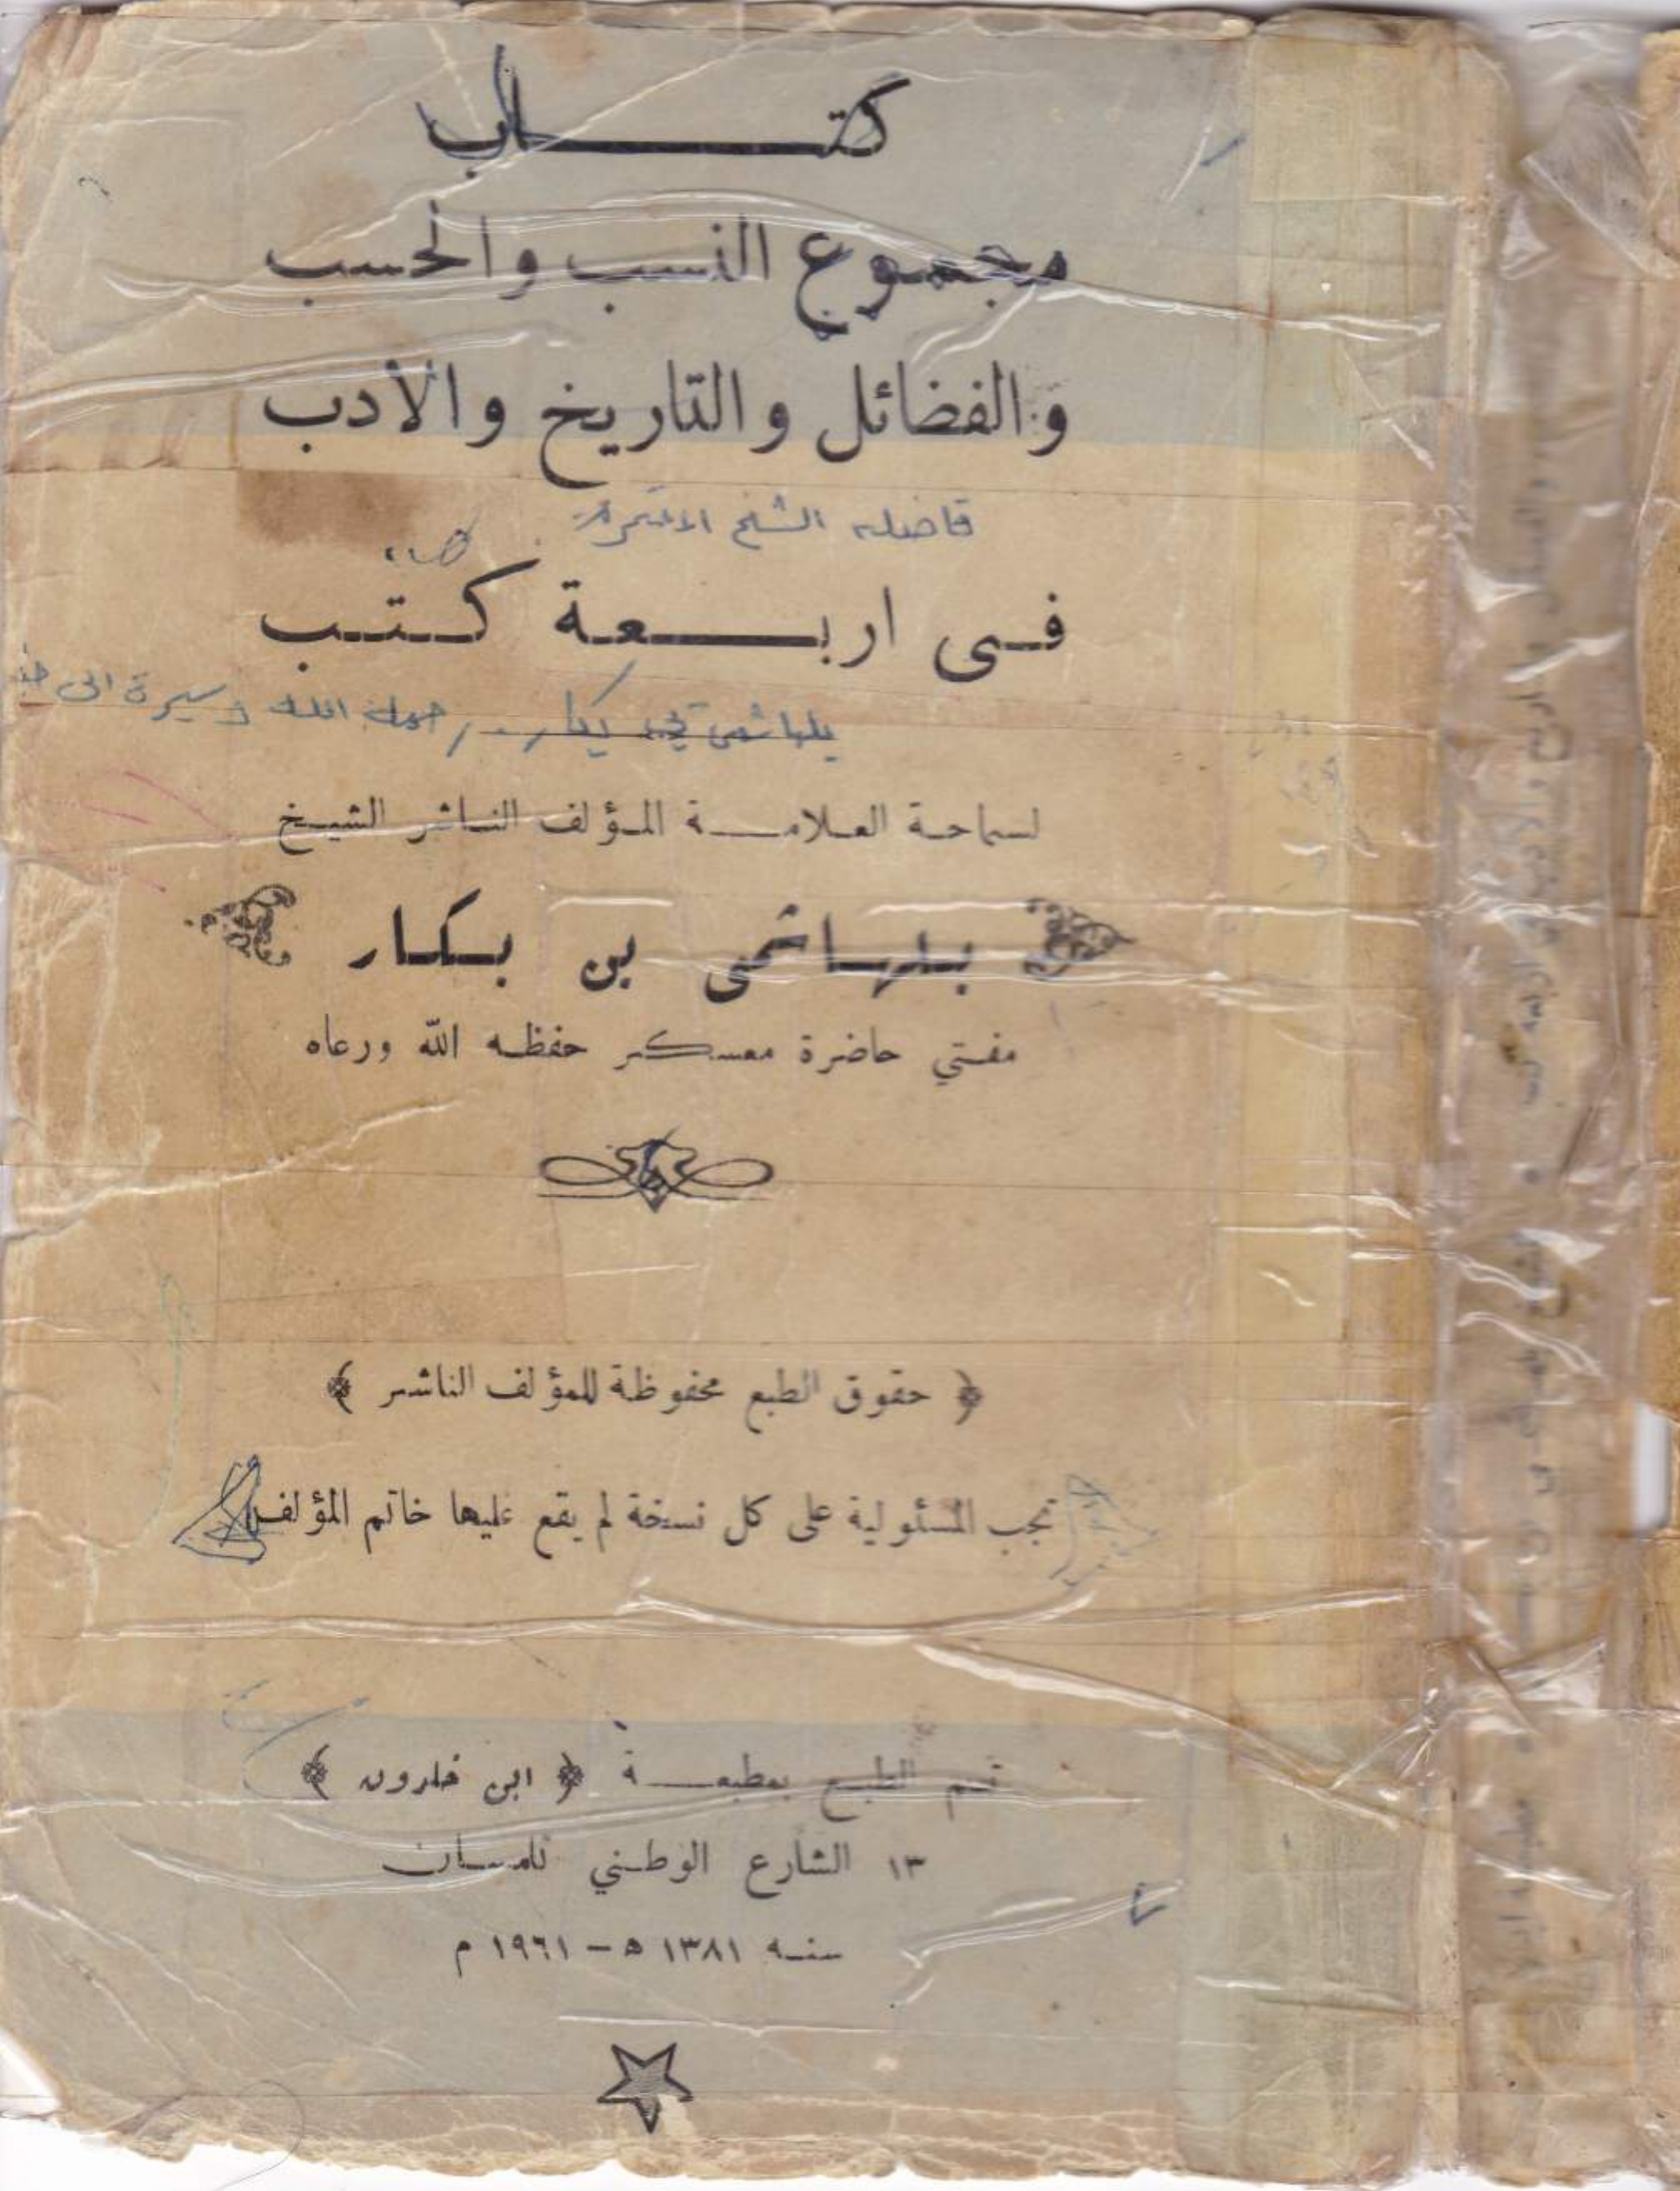 كتاب
مجموع النسب والحسب
والفضائل والتاريخ والأدب
الشيخ
فى اربعة كتب
بكار
لسماحة العلامة المؤلف الناشر الشيخ
بلهاشمى بن بكار
مفتي حاضرة معسكر حفظه الله ورعاه
﴿ حقوق الطبع محفوظة للمؤلف الناشر ﴾
تجب المسئولية على كل نسخة لم يقع عليها خاتم المؤلف
تم الطبع بمطبعة ﴿ ابن خلدون ﴾
١٣ الشارع الوطني تلمسان
سنه ١٣٨١ ه – ١٩٦١ م